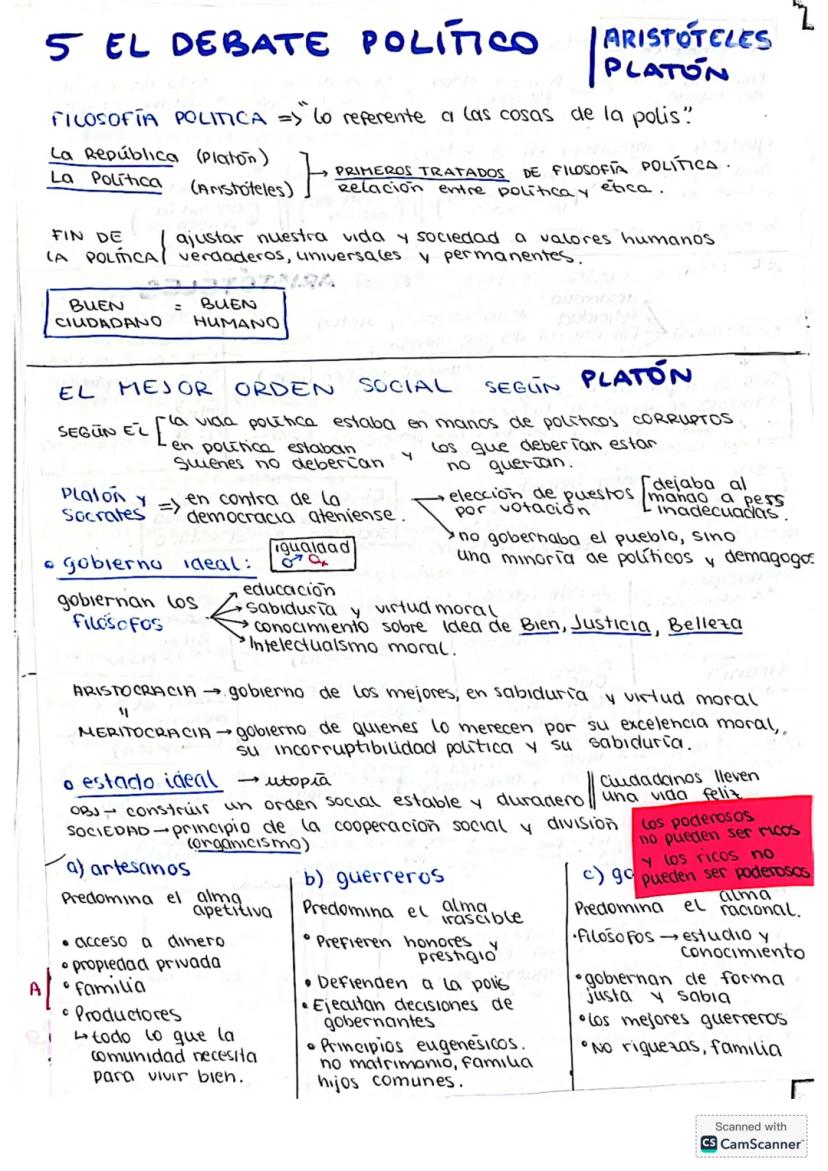 5 EL DEBATE POLÍTICO | ARISTÓTELES
PLATÓN
FILOSOFÍA POLITICA => "lo referente a las cosas de la polis".
La República (Platón)
La Política (Aristóteles)
→ PRIMEROS TRATADOS DE FILOSOFÍA POLÍTICA.
Relación entre política y ética.
FIN DE LA POLÍTICA
ajustar nuestra vida y sociedad a valores humanos
verdaderos, universales y permanentes.
BUEN = BUEN
CIUDADANO HUMANO
EL MEJOR ORDEN SOCIAL SEGÚN PLATÓN
SEGÚN ÉL
la vida política estaba en manos de políticos CORRUPTOS
en política estaban quienes no deberían y los que deberían estar no querían.
Platón y Socrates => en contra de la democracia ateniense.
→ elección de puestos por votación
dejaba al mando a pers inadecuadas.
→ no gobernaba el pueblo, sino
una minoría de políticos y demagogos
• gobierno ideal:
igualdad
♂ ♀
gobiernan los FILÓSOFOS
→ educación
→ sabiduría y virtud moral
→ conocimiento sobre Idea de Bien, Justicia, Belleza
→ Intelectualsmo moral.
ARISTOCRACIA → gobierno de los mejores, en sabiduría y virtud moral
MERITOCRACIA → gobierno de quienes lo merecen por su excelencia moral,
su incorruptibilidad política y su sabiduría.
o estado ideal → utopía
OBJ → construir un orden social estable y duradero || ciudadanos lleven una vida feliz
SOCIEDAD → principio de la cooperación social y división
(organicismo)
Los poderosos
no pueden ser ricos
y los ricos no
pueden ser poderosos
a) artesanos
Predomina el alma apetitiva
• acceso a dinero
• propiedad privada
• familia
A
• Productores
↳ todo lo que la
comunidad necesita
para vivir bien.
b) guerreros
Predomina el alma irascible
• Prefieren honores y prestigio
• Defienden a la polis
• Ejecutan decisiones de
gobernantes
• Principios eugenésicos.
no matrimonio, familia
hijos comunes.
c) go
Predomina el alma racional.
• filósofos → estudio y conocimiento
• gobiernan de forma
justa y sabia
• los mejores guerreros
• No riquezas, familia
Scanned with
CS CamScanner